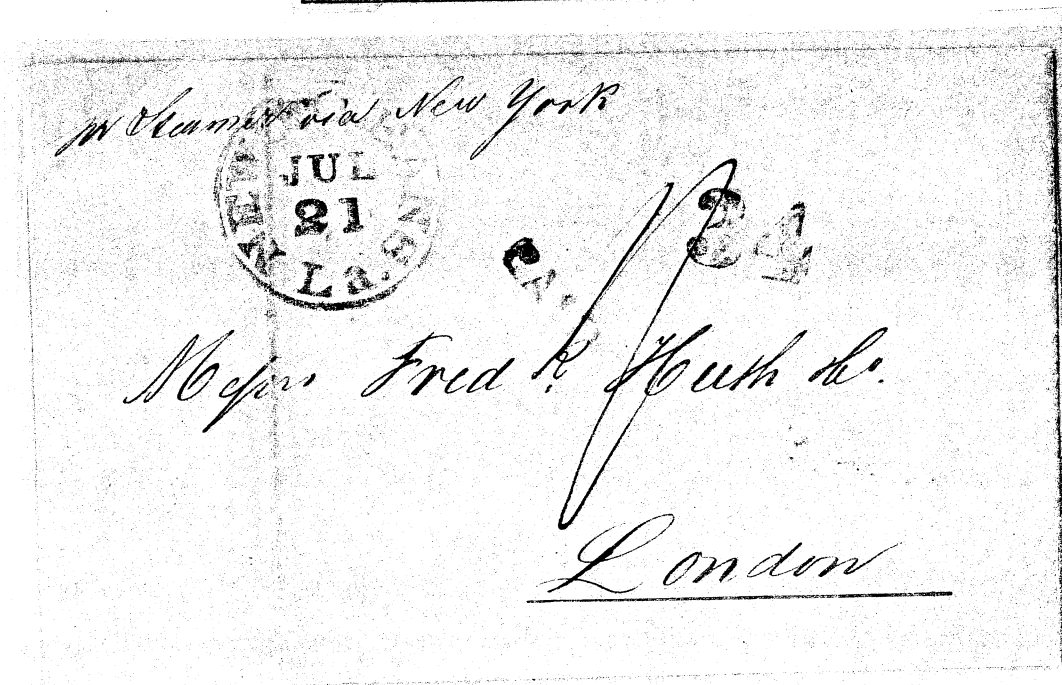 pr Steamer via New York
NEW ANS La.
JUL
21
24
Messrs Fredk. Huth & Co.
London